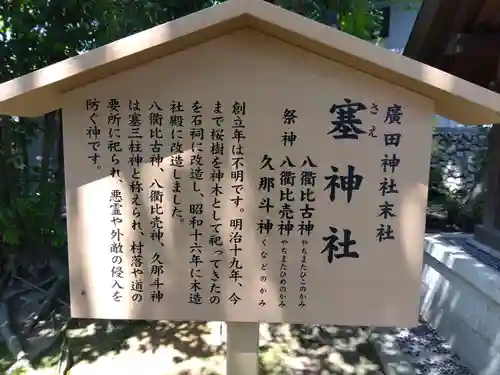 廣田神社末社
塞神社
さえ
祭神
八衢比古神
やちまたひこのかみ
八衢比売神
やちまたひめのかみ
久那斗神
くなどのかみ
創立年は不明です。明治十九年、今
まで桜樹を神木として祀ってきたの
を石祠に改造し、昭和十六年に木造
社殿に改造しました。
八衢比古神、八衢比売神、久那斗神
は塞三柱神と称えられ、村落や道の
要所に祀られ、悪霊や外敵の侵入を
防ぐ神です。